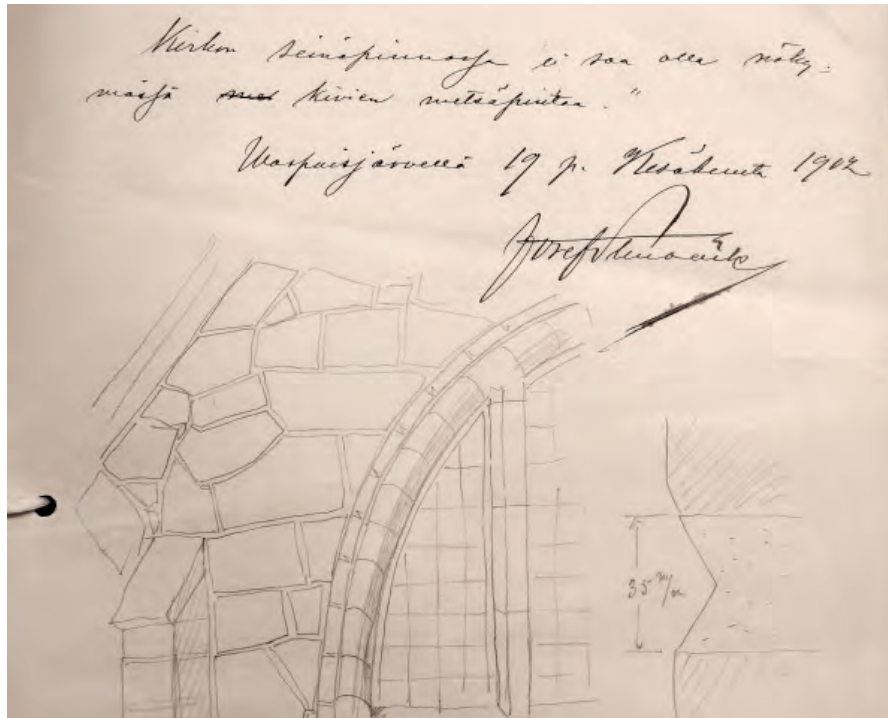 Kirkon seinäpinnassa ei saa olla näky-
mässä kivien metsäpintaa."
19 p. Kesäkuuta 1902
Josef Stenbäck
35 m/m